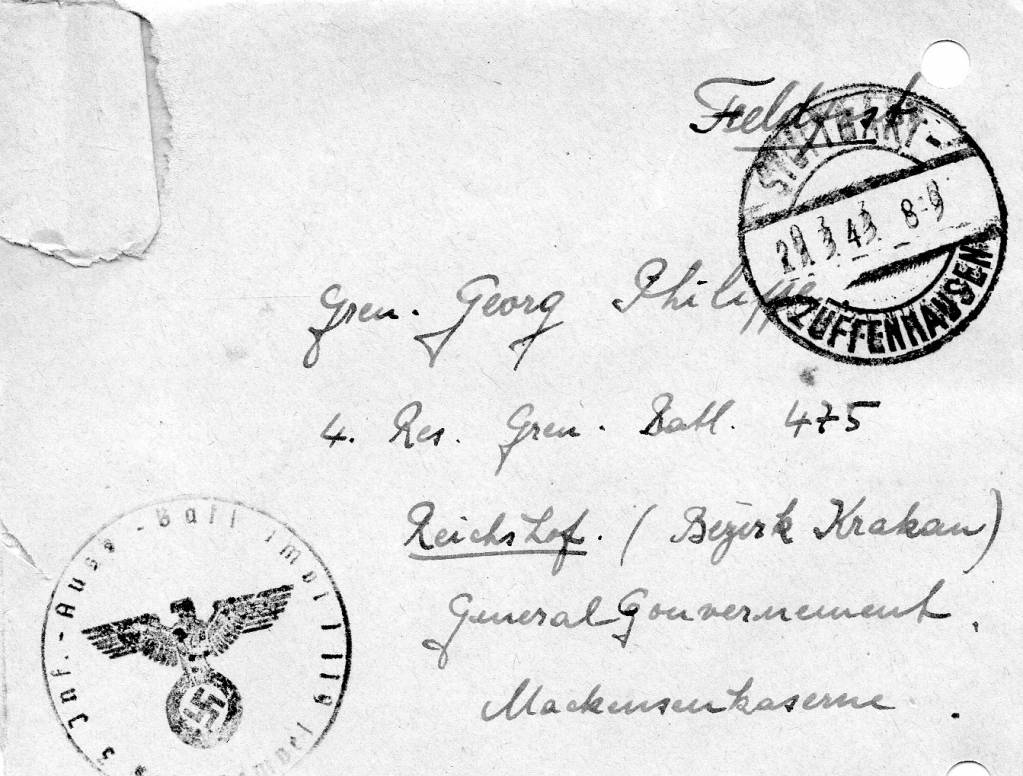 Feldpost
STUTTGART-
29.3.43. 8-9
ZUFFENHAUSEN
Gren. Georg Philipp
4. Res. Gren. Batl. 475
Reichshof. (Bezirk Krakau)
General Gouvernement.
Mackensenkaserne.
Inf.-Ausb.-Batl